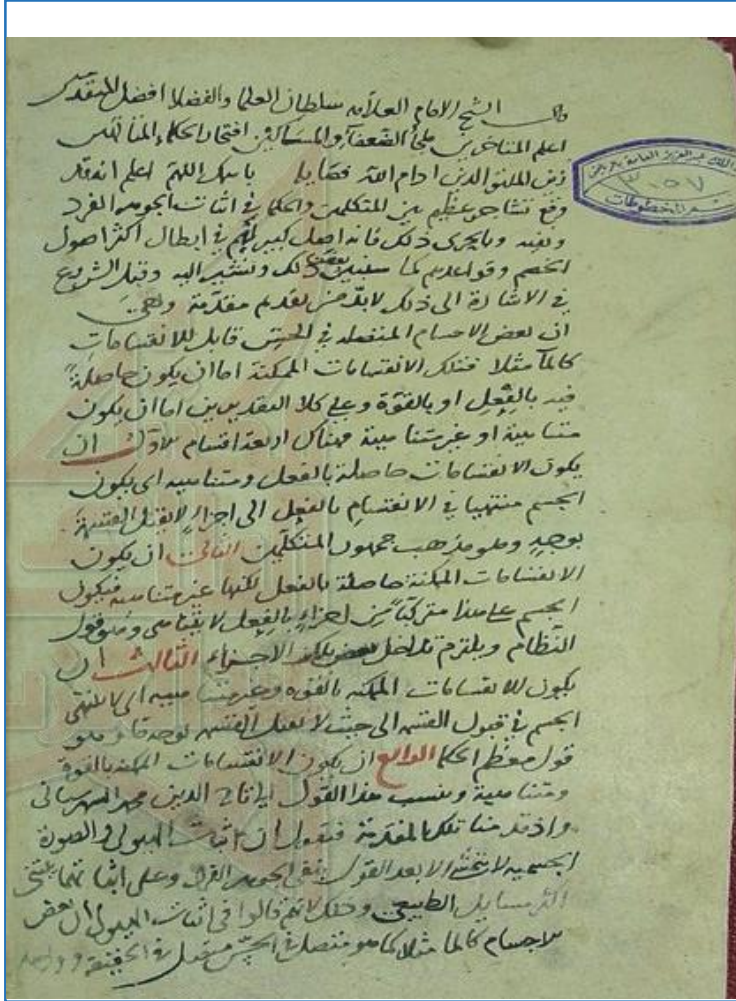 قال الشيخ الامام العلامه سلطان العلما والفضلا افضل المتقدمين
اعلم المتاخرين ملجأ الضعفاء والمساكين افتخار الحكماء المتالهين
زين الملة والدين ادام الله فضايله باسمك اللهم اعلم انه قد
وقع تشاجر عظيم بين المتكلمين والحكما في اثبات الجوهر الفرد
ونفيه وبالحرى ذلك فانه اصل كبير لهم في ابطال اكثر اصول
الخصم وقواعدهم كما سنبين بعض ذلك ونشير اليه وقبل الشروع
في الاشارة الى ذلك لابد من تقديم مقدمة وهي
ان بعض الاجسام المنفصله في الحس قابل للانقسامات
كالما مثلا فتلك الانقسامات الممكنة اما ان يكون حاصلة
فيه بالفعل او بالقوة وعلى كلا التقديرين اما ان يكون
متناهية او غير متناهية فهناك اربعة اقسام الاول ان
يكون الانقسامات حاصلة بالفعل ومتناهيه اى يكون
الجسم منتهيا في الانقسام بالفعل الى اجزاء لا يقبل القسمة
بوجه وهو مذهب جمهور المتكلمين الثانى ان يكون
الانقسامات الممكنة حاصلة بالفعل لكنها غير متناهيه فيكون
الجسم على هذا متركبا من اجزاء بالفعل لا يتناهى وهو قول
النظام ويلتزم تداخل بعض تلك الاجزاء الثالث ان
يكون الانقسامات الممكنه بالقوه وغير متناهيه اى لا ينتهى
الجسم في قبول القسمه الى حيث لا يقبل القسمه بوجه وهو
قول معظم الحكما الرابع ان يكون الانقسامات الممكنه بالقوة
ومتناهية وينسب هذا القول الى تاج الدين محمد الشهرستانى
واذ قدمنا تلك المقدمة فنقول ان اثبات الهيولى والصورة
الجسميه لا يتمشى الا بعد القول بنفى الجوهر الفرد وعلى اثباتهما يبتنى
اكثر مسايل الطبيعى وذلك لانهم قالوا في اثبات الهيولى ان بعض
الاجسام كالما مثلا كما هو متصل في الحس متصل في الحقيقة
الملك عبدالعزيز العامة بالرياض
٣٠٥٧
قسم المخطوطات